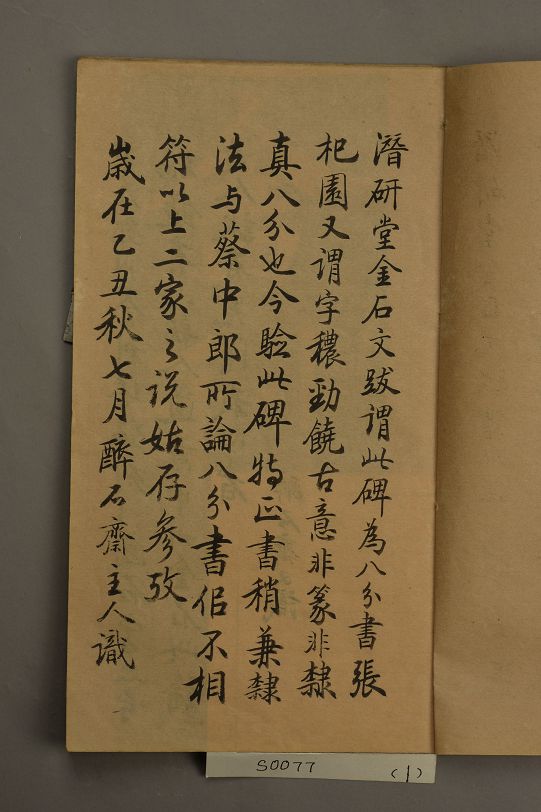 潛研堂金石文跋謂此碑為八分書張
杞園又謂字穠勁饒古意非篆非隸
真八分也今驗此碑特正書稍兼隸
法与蔡中郎所論八分書佀不相
符以上二家之説姑存參攷
歲在乙丑秋七月醉石齋主人識
S0077 (1)